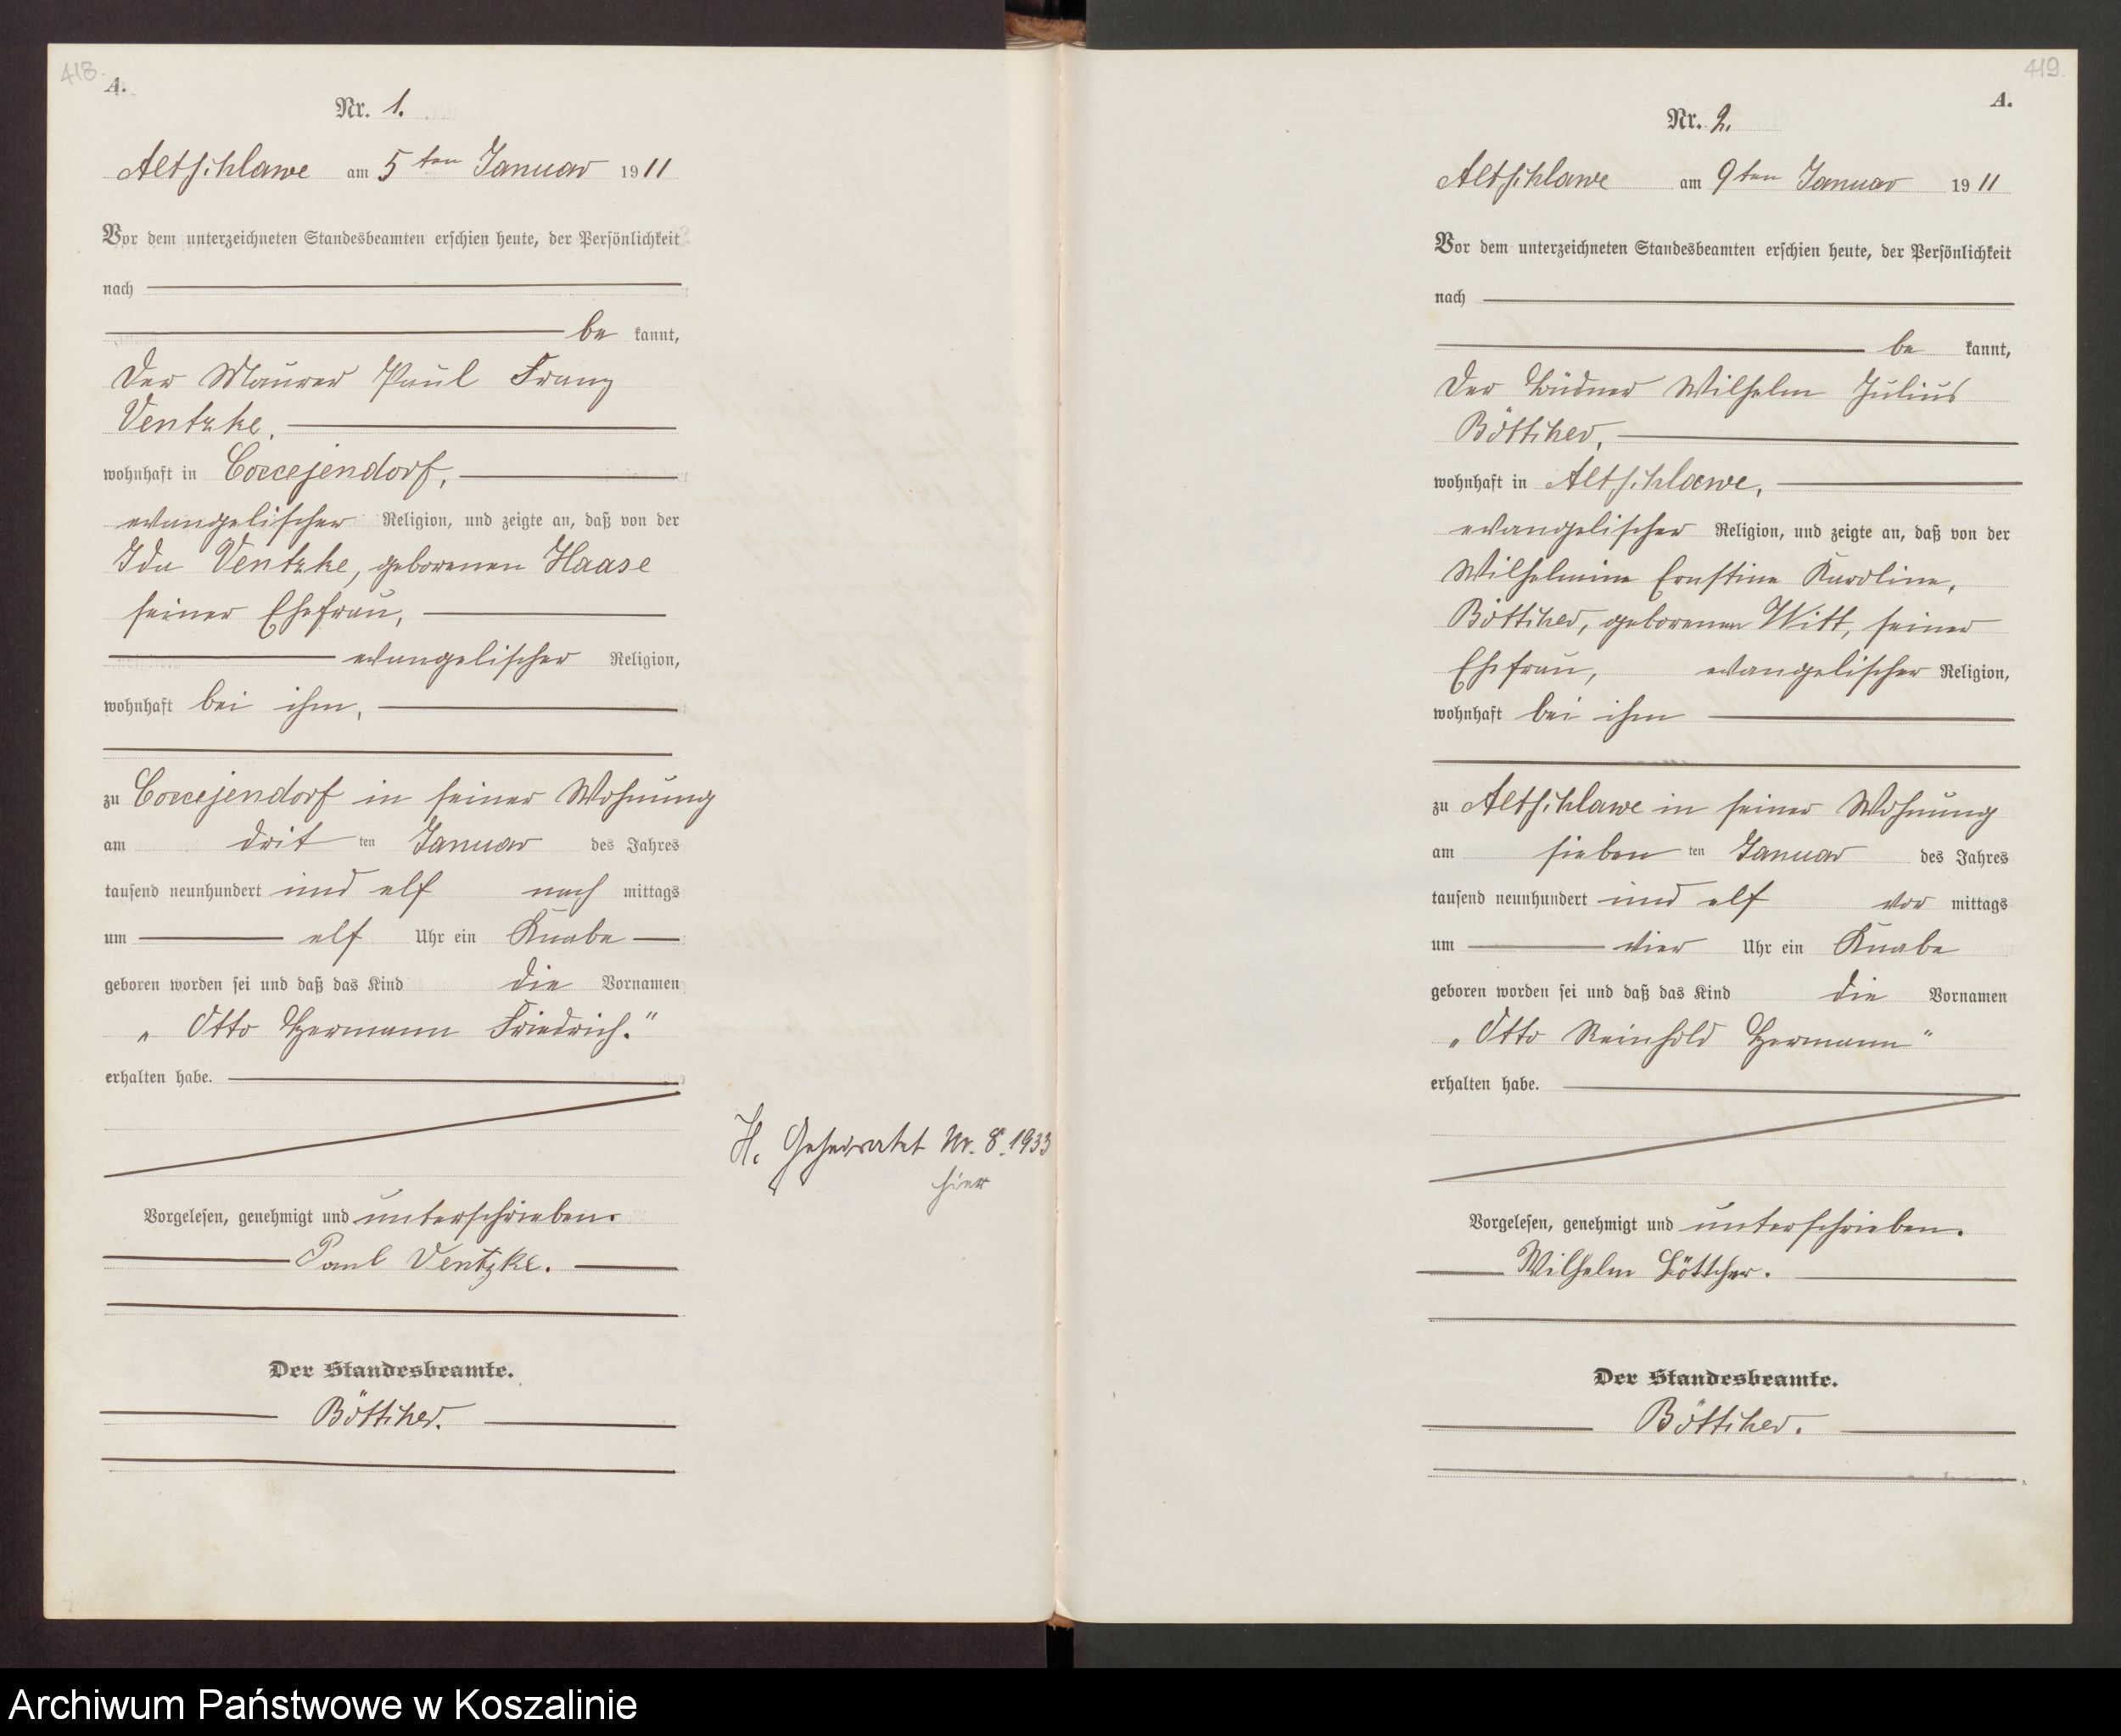 418.
A.
Nr. 1.
Altschlawe am 5ten Januar 1911
Vor dem unterzeichneten Standesbeamten erschien heute, der Persönlichkeit
nach
be kannt,
der Maurer Paul Franz
Ventzke,
wohnhaft in Coccejendorf,
evangelischer Religion, und zeigte an, daß von der
Ida Ventzke, geborenen Haase
seiner Ehefrau,
evangelischer Religion,
wohnhaft bei ihm,
zu Coccejendorf in seiner Wohnung
am drit ten Januar des Jahres
tausend neunhundert und elf nach mittags
um elf Uhr ein Knabe
geboren worden sei und daß das Kind die Vornamen
„Otto Hermann Friedrich."
erhalten habe.
Vorgelesen, genehmigt und unterschrieben.
Paul Ventzke.
Der Standesbeamte.
Böttcher.
H. Geheiratet Nr. 8. 1933
hier
419.
A.
Nr. 2.
Altschlawe am 9ten Januar 1911
Vor dem unterzeichneten Standesbeamten erschien heute, der Persönlichkeit
nach
be kannt,
der Büdner Wilhelm Julius
Böttcher,
wohnhaft in Altschlawe,
evangelischer Religion, und zeigte an, daß von der
Wilhelmine Ernstine Karoline,
Böttcher, geborenen Witt, seiner
Ehefrau, evangelischer Religion,
wohnhaft bei ihm
zu Altschlawe in seiner Wohnung
am sieben ten Januar des Jahres
tausend neunhundert und elf vor mittags
um vier Uhr ein Knabe
geboren worden sei und daß das Kind die Vornamen
„Otto Reinhold Hermann"
erhalten habe.
Vorgelesen, genehmigt und unterschrieben.
Wilhelm Böttcher.
Der Standesbeamte.
Böttcher.
Archiwum Państwowe w Koszalinie